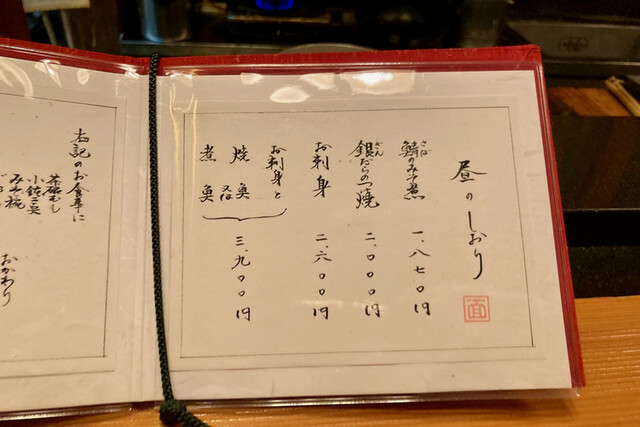 昼のしおり
面
鯖のみそ煮 一、八七〇円
さば
銀だらのつ焼 二、〇〇〇円
ぎん
お刺身 二、六〇〇円
お刺身と
焼魚
又は
煮魚
三、九〇〇円
右記のお食事に
茶碗むし
小鉢二点
みそ椀
おかわり